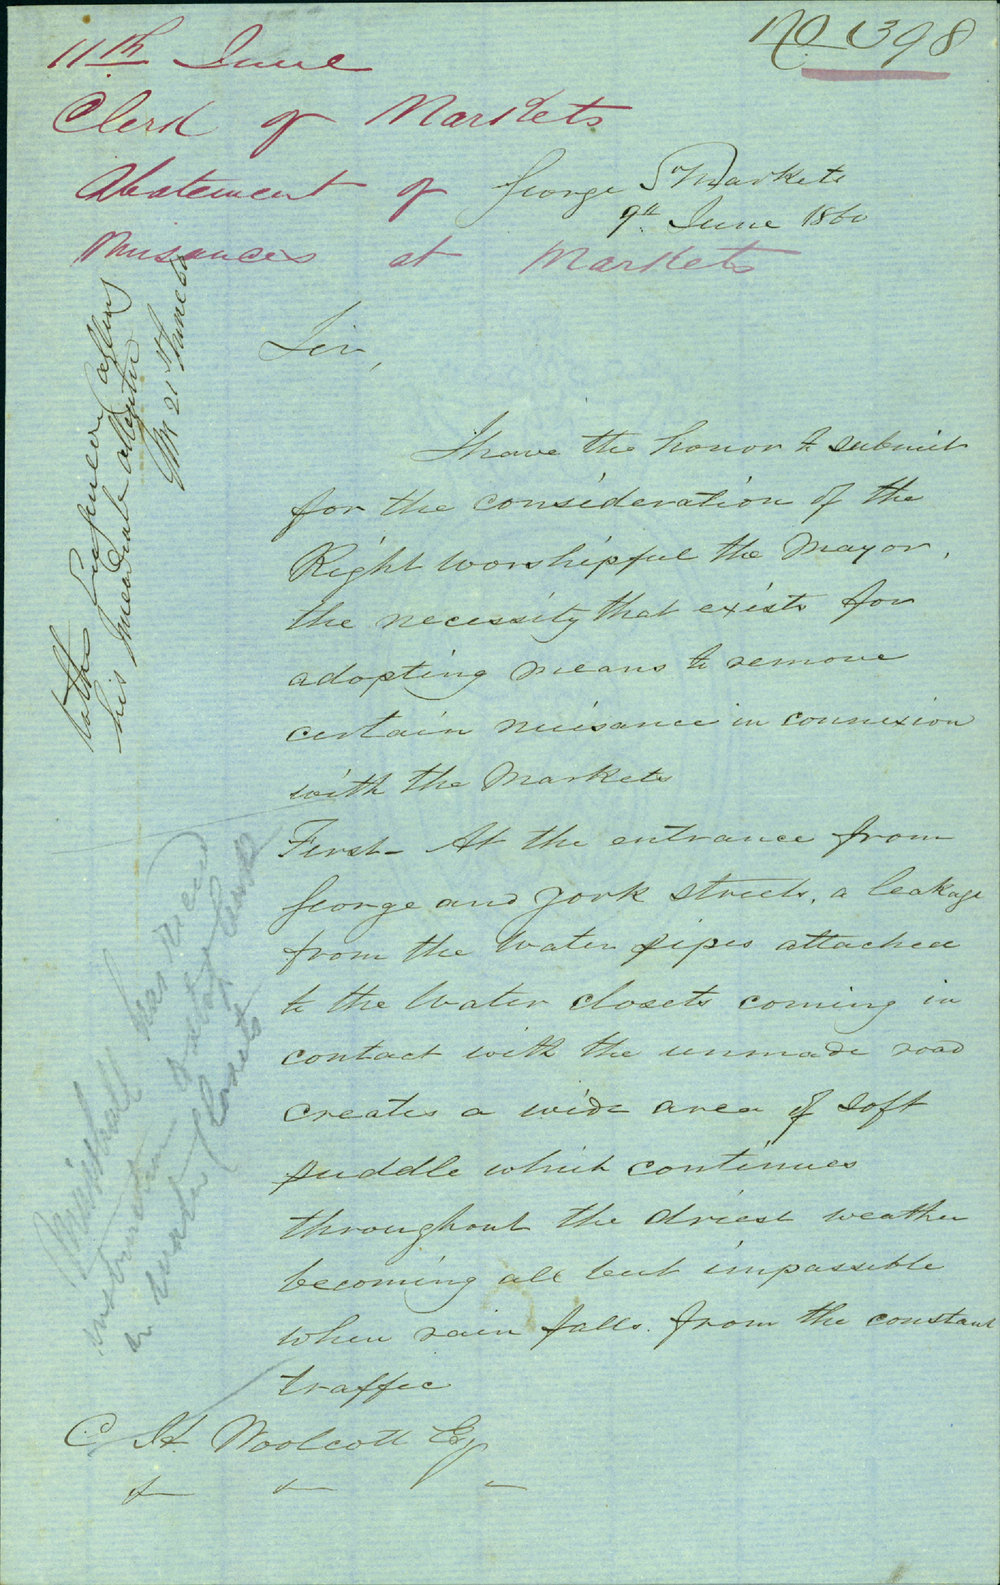 No 1398
11th June
Clerk of Markets
Abatement of
Nuisances at Markets
George St Markets
9th June 1860
Sir,
I have the honor to submit
for the consideration of the
Right Worshipful the Mayor,
the necessity that exists for
adopting means to remove
certain nuisance in connexion
with the Markets
First - At the entrance from
George and York Streets, a leakage
from the Water pipes attached
to the Water closets coming in
contact with the unmade road
creates a wide area of soft
puddle which continues
throughout the driest weather
becoming all but impassible
when rain falls from the constant
traffic
C. H. Woolcott Esq
his immediate attention
21st June 60
has
instruction
water closets